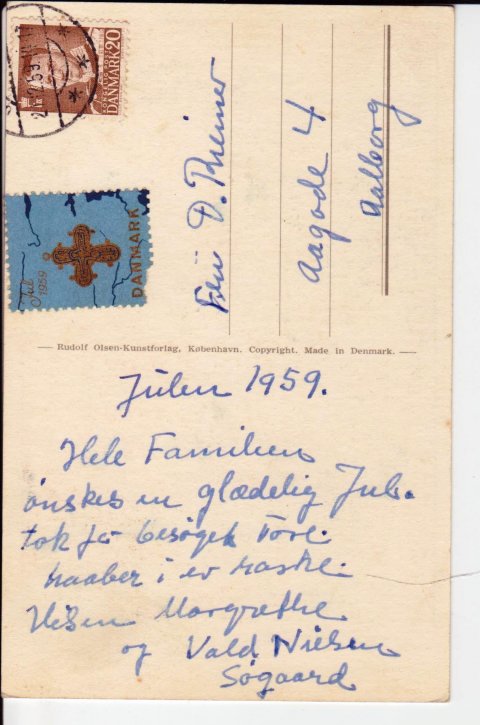 DANMARK 20
Jul 1959
DANMARK
D.
Aagade 4
Aalborg
Rudolf Olsen-Kunstforlag, København. Copyright. Made in Denmark.
Julen 1959.
Hele Familien
ønskes en glædelig Jul.
tak for besøget Tove.
haaber i er raske.
Hilsen Margrethe
og Vald Nielsen
Søgaard